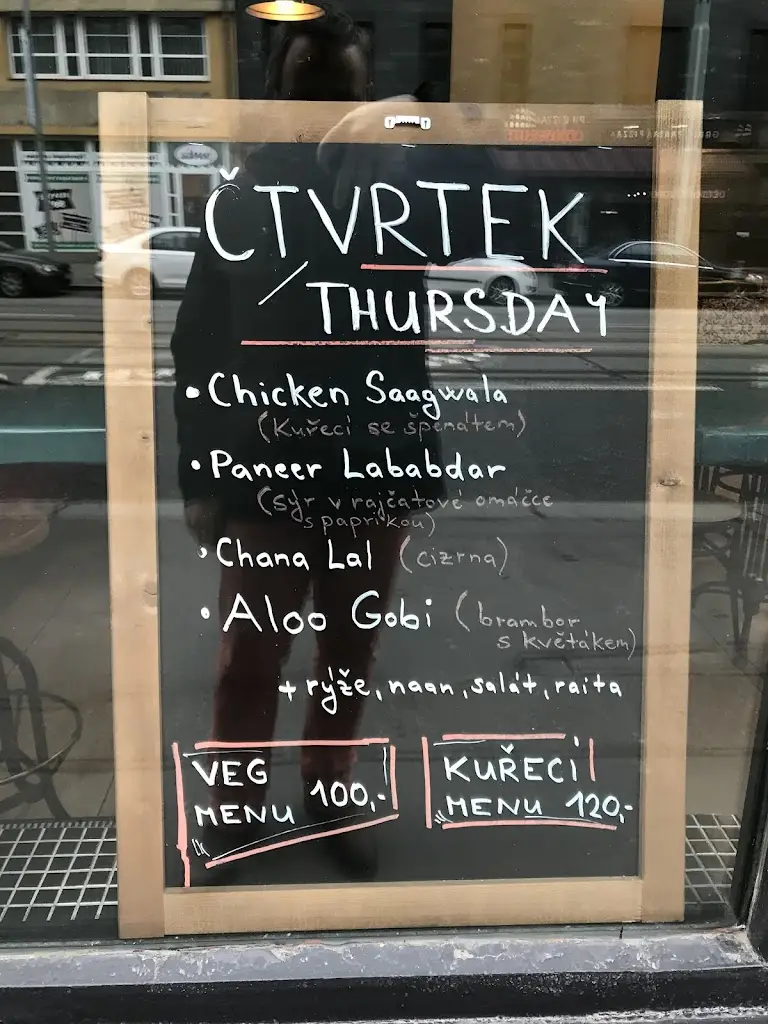 ČTVRTEK
/ THURSDAY
• Chicken Saagwala
(Kuřecí se špenátem)
• Paneer Lababdar
(sýr v rajčatové omáčce
s paprikou)
• Chana Lal (cizrna)
• Aloo Gobi (brambor
s květákem)
+ rýže, naan, salát, raita
VEG
MENU 100,-
KUŘECÍ
MENU 120,-